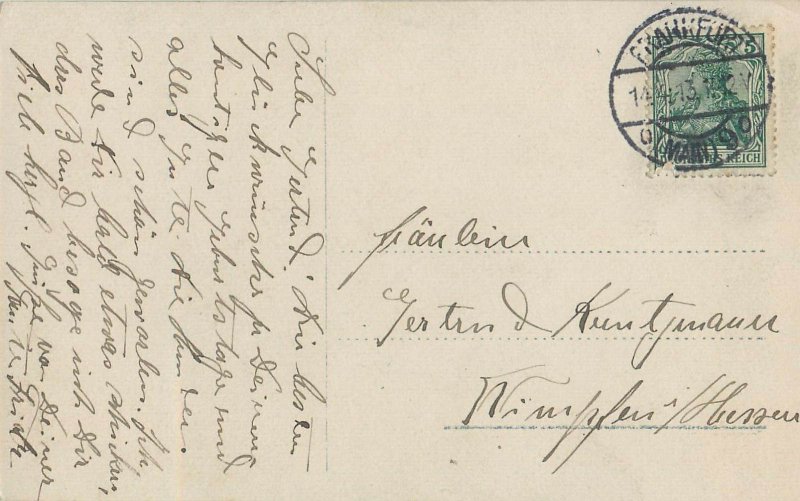 Liebe Gertrud! Die besten
Glückwünsche zu Deinem
heutigen Geburtstage und
alles Gute. Die
sind schön geworden. Ich
werde Dir bald etwas schicken,
das Band besorge ich Dir
Viele herzl. Grüße von Deiner
Tante Frida
FRANKFURT
14. 13. 
(MAIN) 9
5
REICH
Fräulein
Gertrud Kuntzmann
Wimpfen/Hessen